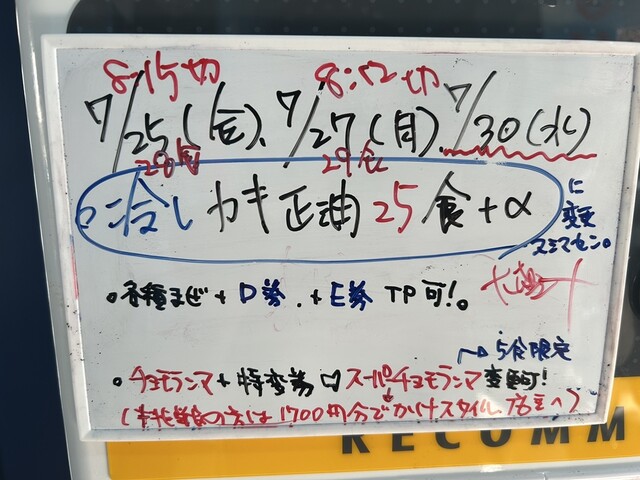 8:15切 8:52切
7/25(金)、7/27(月)、7/30(水)
28食 29食
冷しカキ正油25食+α
に変更スミマセン。
・各種まぜ+D券、+E券 TP可!。
5食限定
・チョモランマ+特変券 スーパーチョモランマ変更可!
1700円分でかけスタイル。店主へ)
RECOMM